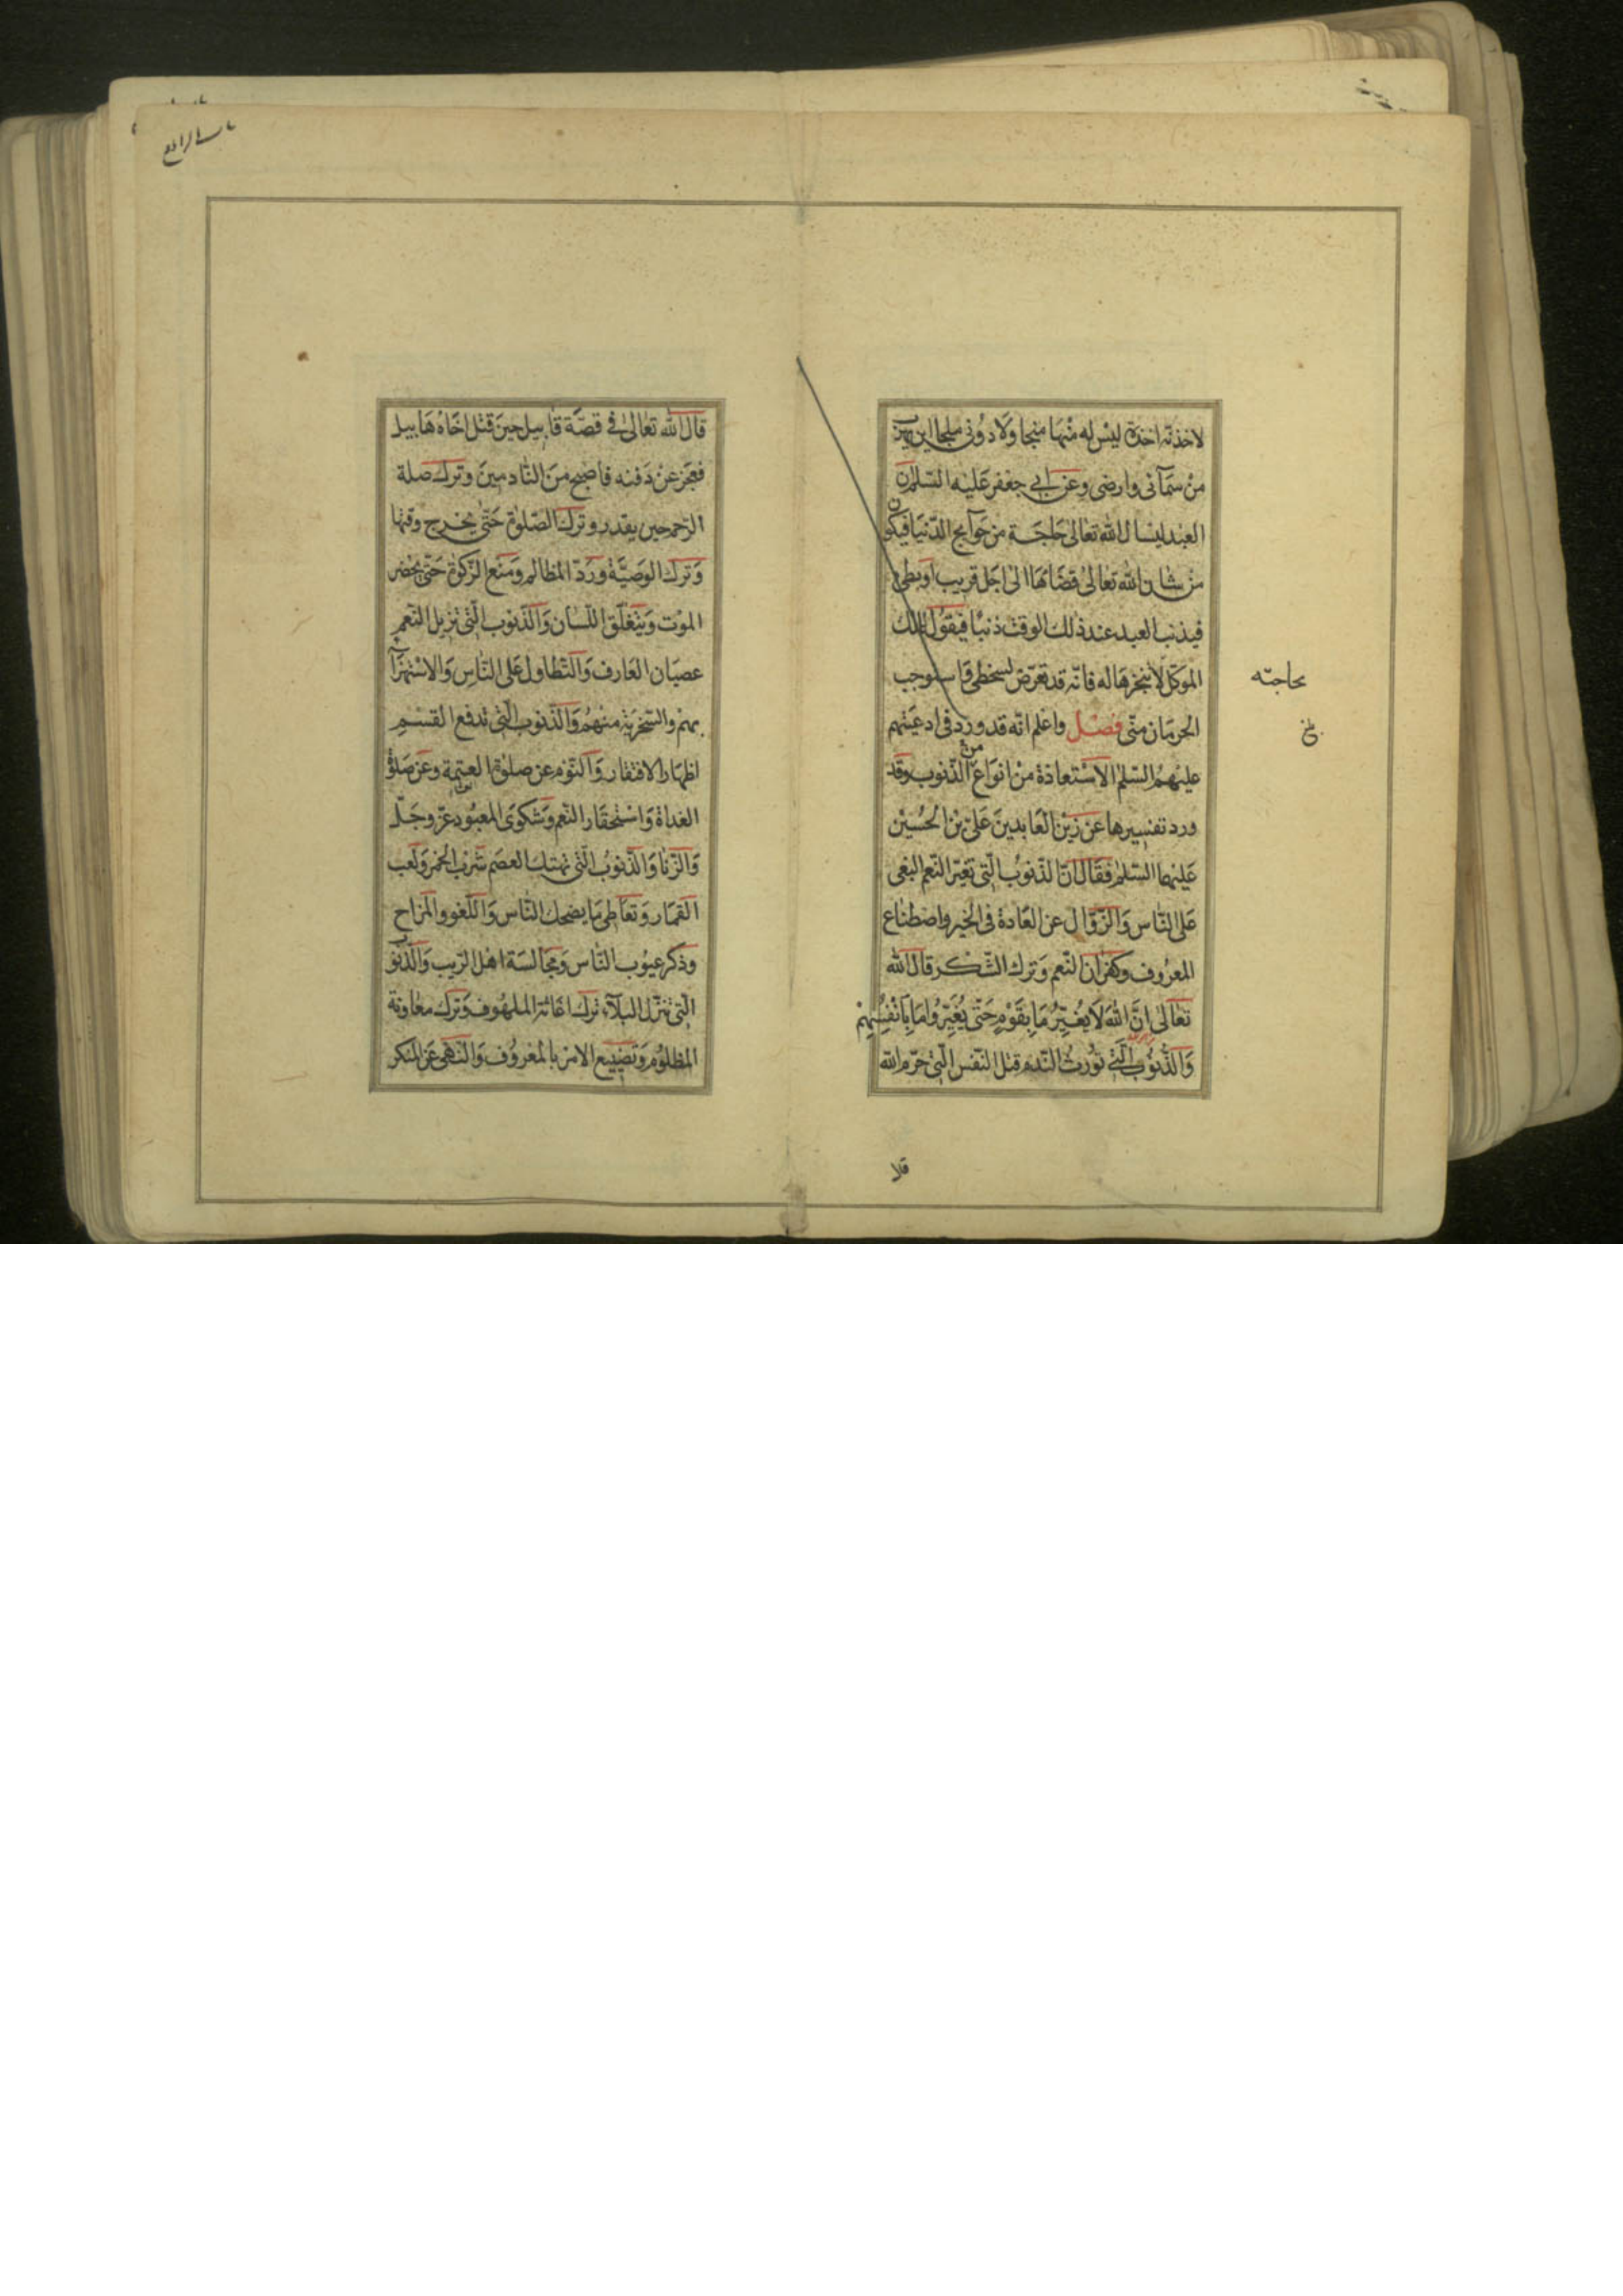 لاخذته اخذة ليس له منها منجا ولا دونى ملجا اين يهرب
من سمآئى وارضى وعن ابى جعفر عليه السلم ان
العبد ليسال الله تعالى حاجة من حوآيج الدنيا فيكون
من شان الله تعالى قضآئها الى اجل قريب او بطئ
فيذنب العبد عند ذلك الوقت ذنبا فيقول للملك
الموكل لا تنجزها له فانه قد تعرض لسخطى واستوجب
بحاجته
الحرمان منى فصل واعلم انه قد ورد فى ادعيتهم
عليهم السلم الاستعاذة من انواع من الذنوب وقد
ورد تفسيرها عن زين العابدين على بن الحسين
عليهما السلم فقال ان الذنوب التى تغير النعم البغى
على الناس والزوال عن العادة فى الخير واصطناع
المعروف وكفران النعم وترك الشكر قال الله
تعالى اِنَّ اللهَ لَا يُغَيِّرُ مَا بِقَوْمٍ حَتّى يُغَيِّرُوا مَا بِاَنْفُسِهِمْ
والذنوب التى تورث الندم قتل النفس التى حرم الله
قال
قال الله تعالى فى قصة قابيل حين قتل اخاه هابيل
فعجز عن دفنه فاصبح من النادمين وترك صلة
الرحم حين يقدر وترك الصلوة حتى يخرج وقتها
وترك الوصية ورد المظالم ومنع الزكوة حتى يحضر
الموت وينغلق اللسان والذنوب التى تزيل النعم
عصيان العارف والتطاول على الناس والاستهزآء
بهم والسخرية منهم والذنوب التى تدفع القسم
اظهار الافتقار والنوم عن صلوة العتمة وعن صلوة
الغداة واستحقار النعم وشكوى المعبود عز وجل
والزنا والذنوب التى تهتك العصم شرب الخمر ولعب
القمار وتعاطى ما يضحك الناس واللغو والمزاح
وذكر عيوب الناس ومجالسة اهل الريب والذنوب
التى تنزل البلآء ترك اغاثة الملهوف وترك معاونة
المظلوم وتضييع الامر بالمعروف والنهى عن المنكر